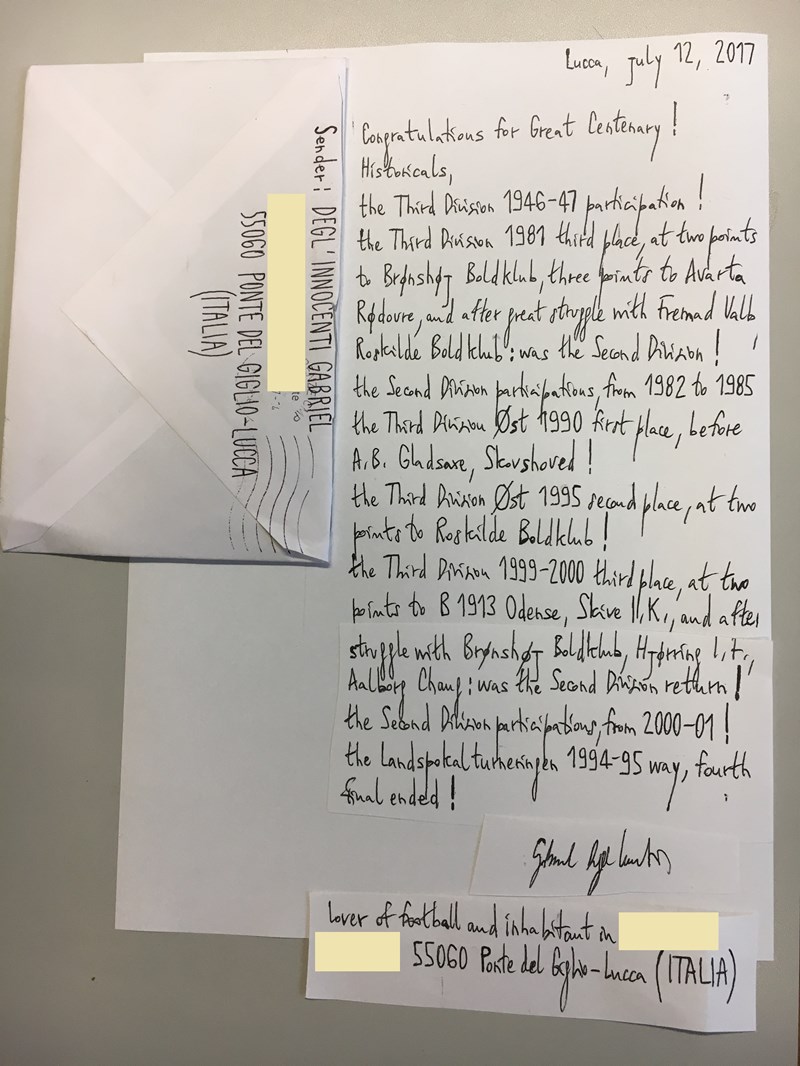 Lucca, july 12, 2017
Congratulations for Great Centenary!
Historicals,
the Third Division 1946-47 participation!
the Third Division 1981 third place, at two points
to Brønshøj Boldklub, three points to Avarta
Rødovre, and after great struggle with Fremad Valb
Roskilde Boldklub: was the Second Division!
the Second Division participations, from 1982 to 1985
the Third Division Øst 1990 first place, before
A.B. Gladsaxe, Skovshoved!
the Third Division Øst 1995 second place, at two
points to Roskilde Boldklub!
the Third Division 1999-2000 third place, at two
points to B 1913 Odense, Skive I.K., and after
struggle with Brønshøj Boldklub, Hjørring I.F.,
Aalborg Chang: was the Second Division return!
the Second Division participations, from 2000-01!
the Landspokalturneringen 1994-95 way, fourth
final ended!
lover of football and inhabitant in
55060 Ponte del Giglio-Lucca (ITALIA)
Sender: DEGL'INNOCENTI GABRIEL
55060 PONTE DEL GIGLIO-LUCCA
(ITALIA)